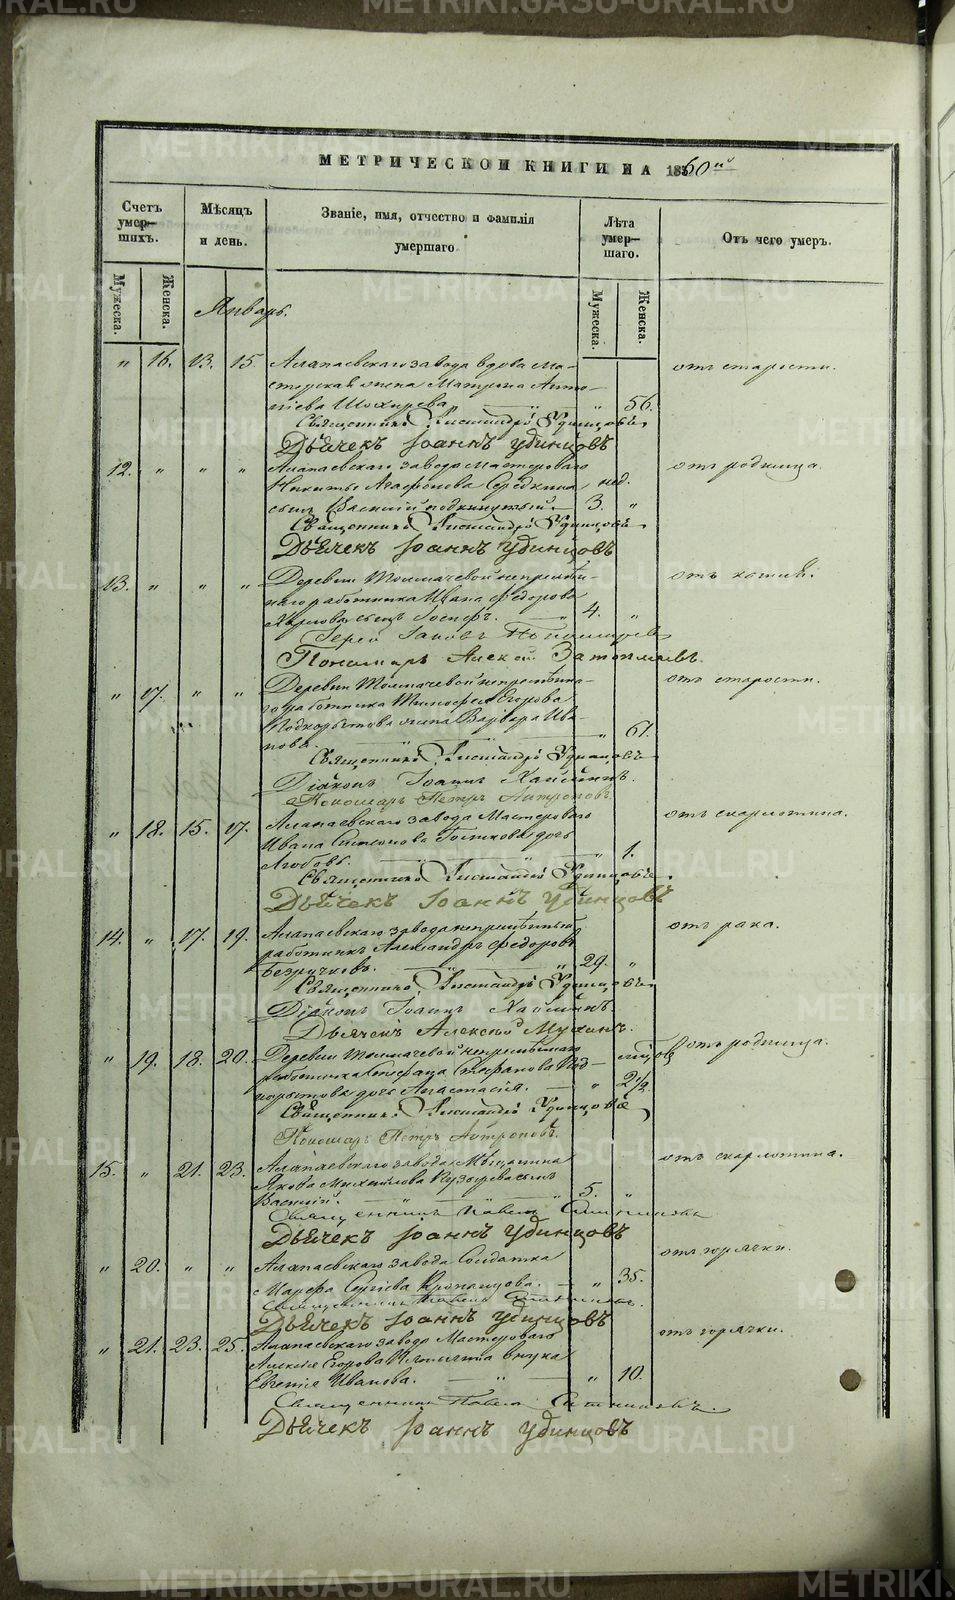 METRIKI.GASO-URAL.RU
МЕТРИЧЕСКОЙ КНИГИ НА 1860й
Счетъ умер-шихъ.
Мѣсяцъ и день.
Званіе, имя, отчество и фамилія умершаго
Лѣта умер-шаго.
Отъ чего умеръ.
Мужеска.
Женска.
Мужеска.
Женска.
Январь.
" 16. 13. 15. Алапаевскаго завода вдова Ма-
стерская жена Матрона Анто-
нiева " 56. отъ старости.
Священникъ Александръ Удинцовъ
Дьячекъ Іоаннъ Удинцовъ
12. " " " Алапаевскаго завода Мастероваго
Никиты Агафонова Середкина нед.
сынъ Василій подкинутый 3. " отъ родимца.
Священникъ Александръ Удинцовъ
Дьячекъ Іоаннъ Удинцовъ
13. " " " Деревни Толмачевой непремѣн-
наго работника Ивана Федорова
сынъ Іосифъ. 4. " отъ кашля.
Іерей Іаковъ
Пономарь Алексѣй
" 17. " " Деревни Толмачевой непремѣнна-
го работника Тимофея Егорова
Подкорытова жена Варвара Ива-
нова. " 61. отъ старости.
Священникъ Александръ Удинцовъ
Діаконъ Іоаннъ
Пономарь Петръ Антроповъ
" 18. 15. 17. Алапаевскаго завода Мастероваго
Ивана дочь
Любовь. " 1. отъ скарлатина.
Священникъ Александръ Удинцовъ
Дьячекъ Іоаннъ Удинцовъ
14. " 17. 19. Алапаевскаго завода непремѣнный
работникъ Александръ Федоровъ
Безручковъ. 29. " отъ рака.
Священникъ Александръ Удинцовъ
Діаконъ Іоаннъ
Дьячекъ Алексѣй Мухинъ.
" 19. 18. 20. Деревни Толмачевой непремѣннаго
работника Стефанова Под-
корытова дочь Анастасія. " 2½. отъ родимца.
Священникъ Александръ Удинцовъ
Пономарь Петръ Антроповъ.
15. " 21. 23. Алапаевскаго завода Мѣщанина
Якова Михайлова сынъ
Василій. 5. " отъ скарлатина.
Священникъ Павелъ
Дьячекъ Іоаннъ Удинцовъ
" 20. " " Алапаевскаго завода Солдатка
Марфа Сергіева " 35. отъ горячки.
Священникъ Павелъ
Дьячекъ Іоаннъ Удинцовъ
" 21. 23. 25. Алапаевскаго завода Мастероваго
Алексія Егорова внука
Евгенія Иванова. " 10. отъ горячки.
Священникъ Павелъ
Дьячекъ Іоаннъ Удинцовъ